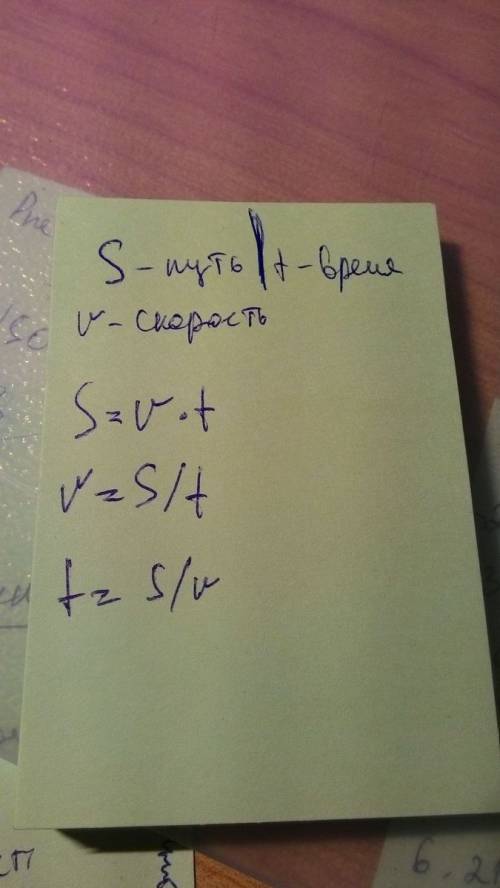 S - путь | t - время
v - скорость
S = v · t
v = S / t
t = S / v
6.